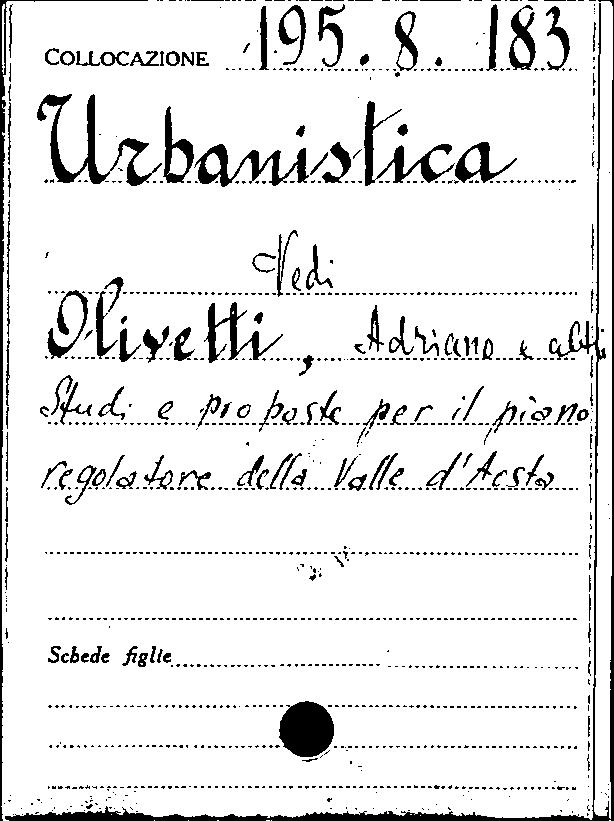 COLLOCAZIONE 195.8.183
Urbanistica
Vedi
Olivetti, Adriano e altri
Studi e proposte per il piano
regolatore della Valle d'Aosta
Schede figlie